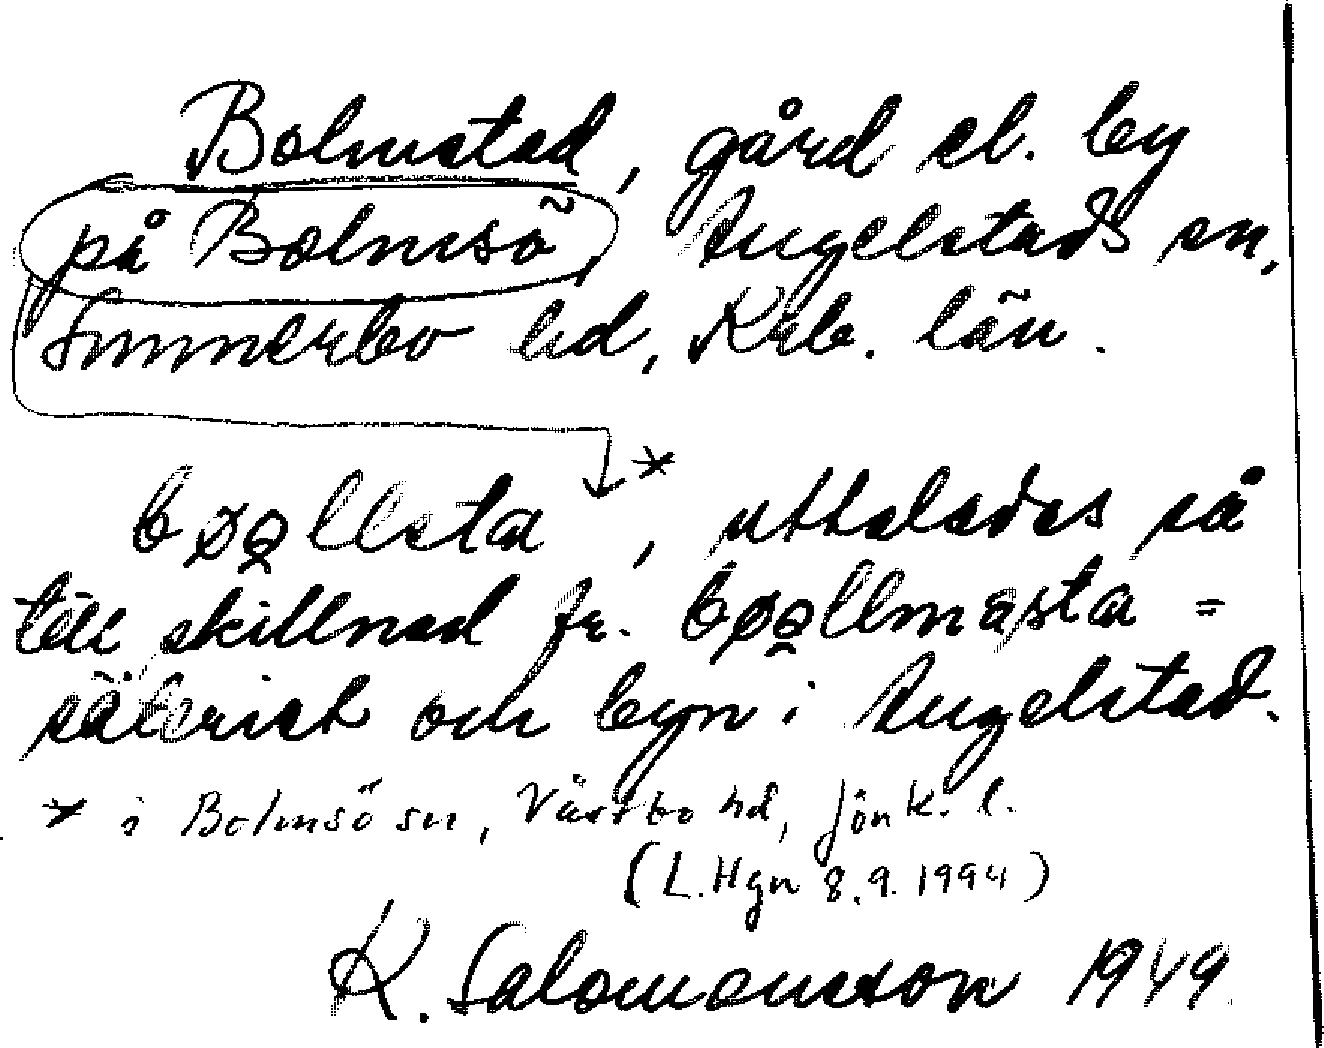 Bolmstad, gård el. by
på Bolmsö, Angelstads sn,
Sunnerbo hd, Krb. län.
*
bøǫllsta, uttalades så
till skillnad fr. bøǫllmasta =
säteriet och byn i Angelstad.
* i Bolmsö sn, Västbo hd, Jönk. l.
(L.Hgn 8.9.1994)
K. Salomonsson 1949.